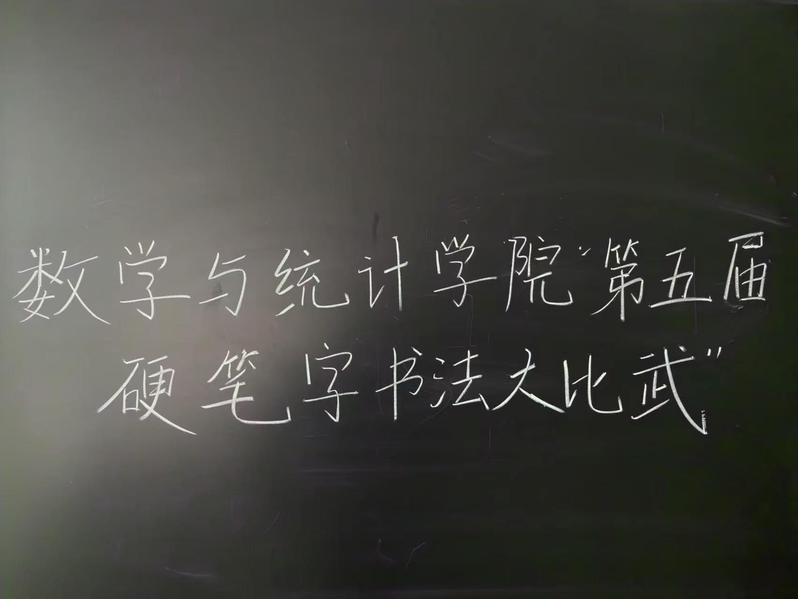 数学与统计学院“第五届
硬笔字书法大比武”